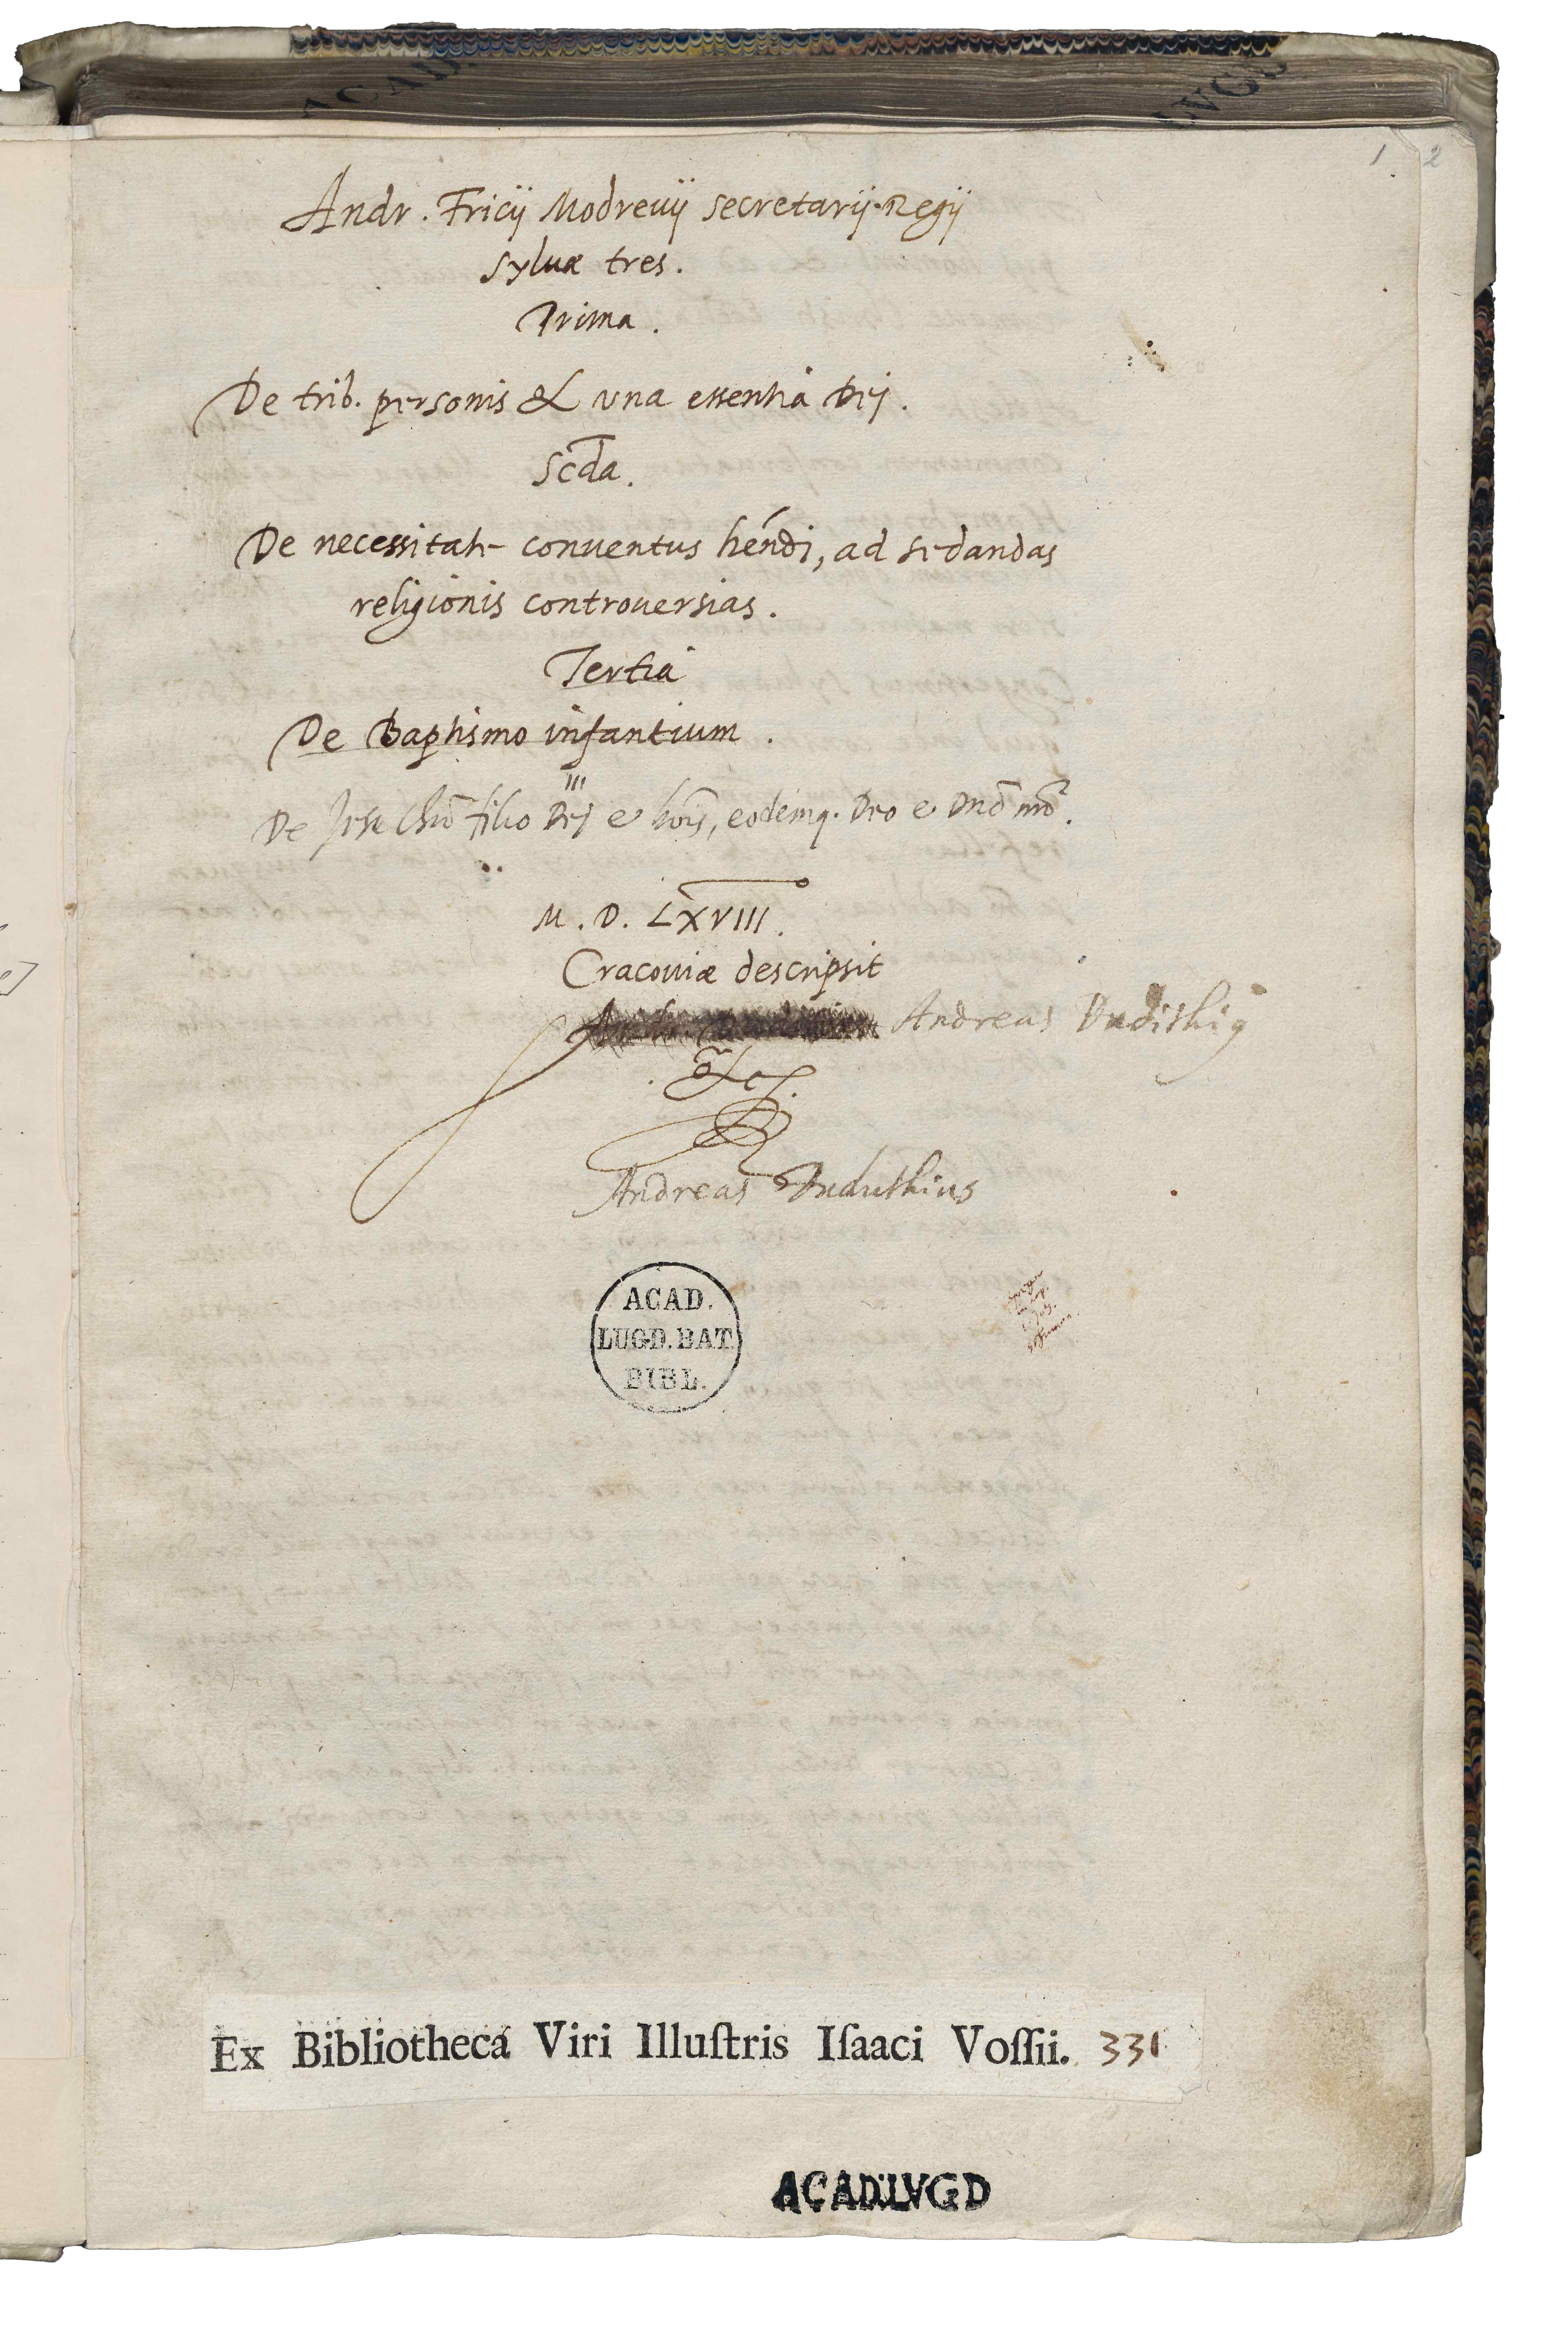 ACAD.
LVGD
1 2
Andr. Fricij Modrevij secretarij Regij
sylvæ tres.
Prima.
De trib. personis & una essentia Dej.
Scda.
De necessitate conventus hendi, ad sedandas
religionis controversias.
Tertia
De Baptismo infantium.
III
De Jesu Chro filio Dej e hois, eodemq. Deo e Dno nro.
M. D. LXVIII.
Cracoviæ descripsit
Andreas Dudithi9
Andreas Duduthius
ACAD.
LUGD. BAT.
BIBL.
Ex Bibliotheca Viri Illuſtris Iſaaci Voſſii. 331
ACAD.LVGD